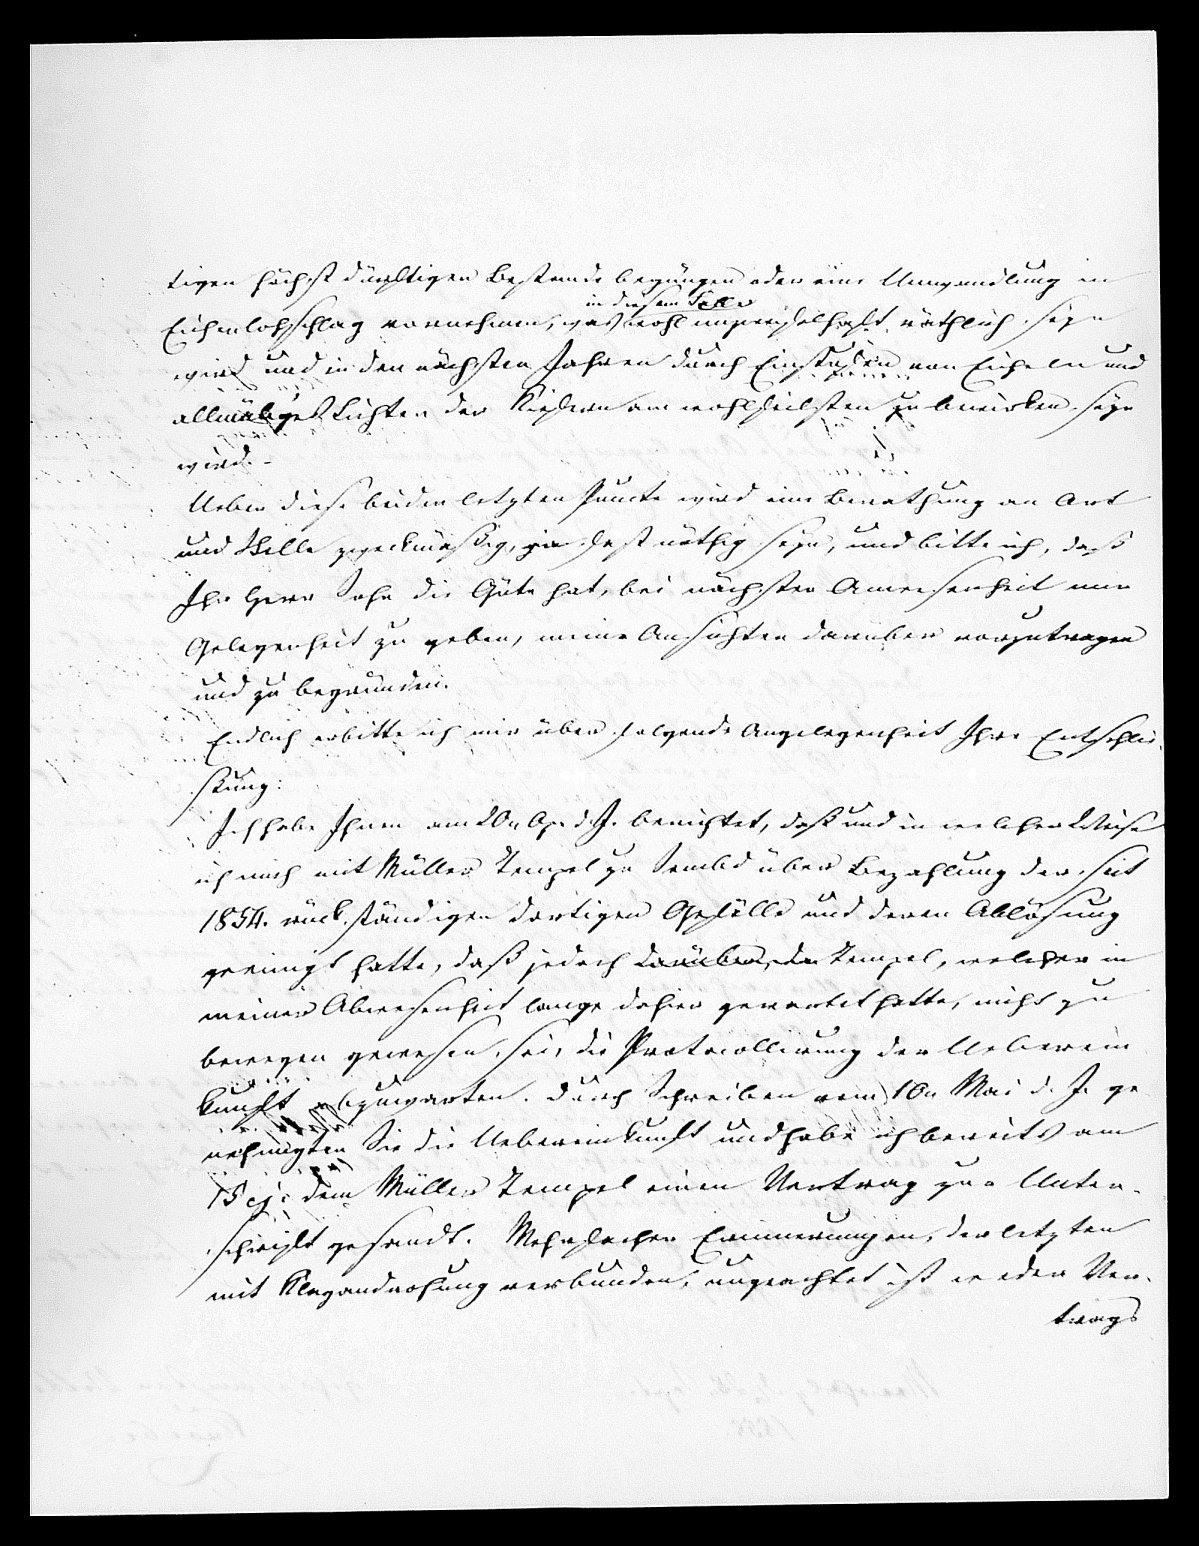 tigen höchst dürftigen Bestande begnügen oder eine Umwandlung in
in diesem Falle
Eichenlohschlag vornehmen, was wohl unzweifelhaft räthlich seyn
wird und in den nächsten Jahren durch Einstufen von Eicheln und
allmäliges Lichten der Kiefern am wohlfeilsten zu bewirken seyn
wird.-
Ueber diese beiden letzten Puncte wird eine Berathung an Ort
und Stelle zweckmäßig, ja fast nöthig seyn, und bitte ich, daß
Ihr Herr Sohn die Güte hat, bei nächster Anwesenheit mir
Gelegenheit zu geben, meine Ansichten darüber vorzutragen
und zu begründen.
Endlich erbitte ich mir über folgende Angelegenheit Ihre Entschlie-
ßung:
Ich habe Ihnen am 20n Ap. d. J. berichtet, daß und in welcher Weise
ich mich mit Müller Tempel zu über Bezahlung der seit
1854. rückständigen dortigen Gefälle und deren Ablösung
geeinigt hatte, daß jedoch darüber, der Tempel, welcher in
meiner Abwesenheit lange dahier gewartet hatte, nicht zu
bewegen gewesen sei, die Protocollirung der Ueberein
kunft abzuwarten. Durch Schreiben vom 10n Mai d. J. ge
nehmigten Sie die Uebereinkunft und habe ich bereits am
15 ej. dem Müller Tempel einen Vertrag zur Unter-
schrift gesandt. Mehrfacher Erinnerungen, der letzten
mit Klagandrohung verbunden, ungeachtet ist weder Ver-
trags